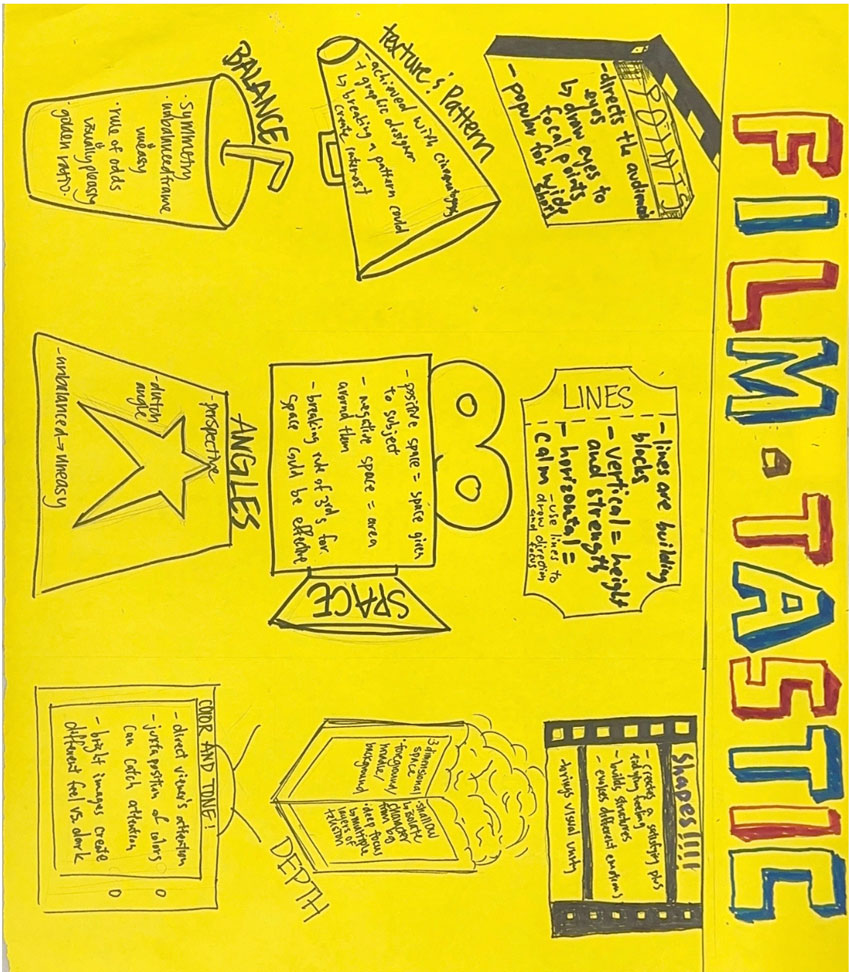 FILM-TASTIC
POINTS
- directs the audience
eyes
↳ draw eyes to
focal points
- popular for wide
shots
LINES
- lines are building
blocks
- vertical = height
and strength
- horizontal =
calm
- use lines to
draw direction
and focus
Shapes!!!!
- creates a satisfying plus
- builds structures
- evokes different emotions
- brings visual unity
texture & Pattern
- achieved with
+ graphic designer
↳ breaking a pattern could
create interest
- positive space = space given
to subject
- negative space = area
around them
- breaking rule of 3rd's for
space could be effective
SPACE
3 dimensional
space
- foreground/
middle/
background
- shallow
isolate
character
from bg
- deep focus
↳ multiple
layers of
DEPTH
BALANCE
• symmetry
• unbalanced frame
uneasy
• rule of odds
visually pleasing
• golden ratio.
ANGLES
- perspective
- dutch
angle
- unbalanced → uneasy
COLOR AND TONE!
- direct viewer's attention
- juxtaposition of colors
can catch attention
- bright images create
different feel vs. dark